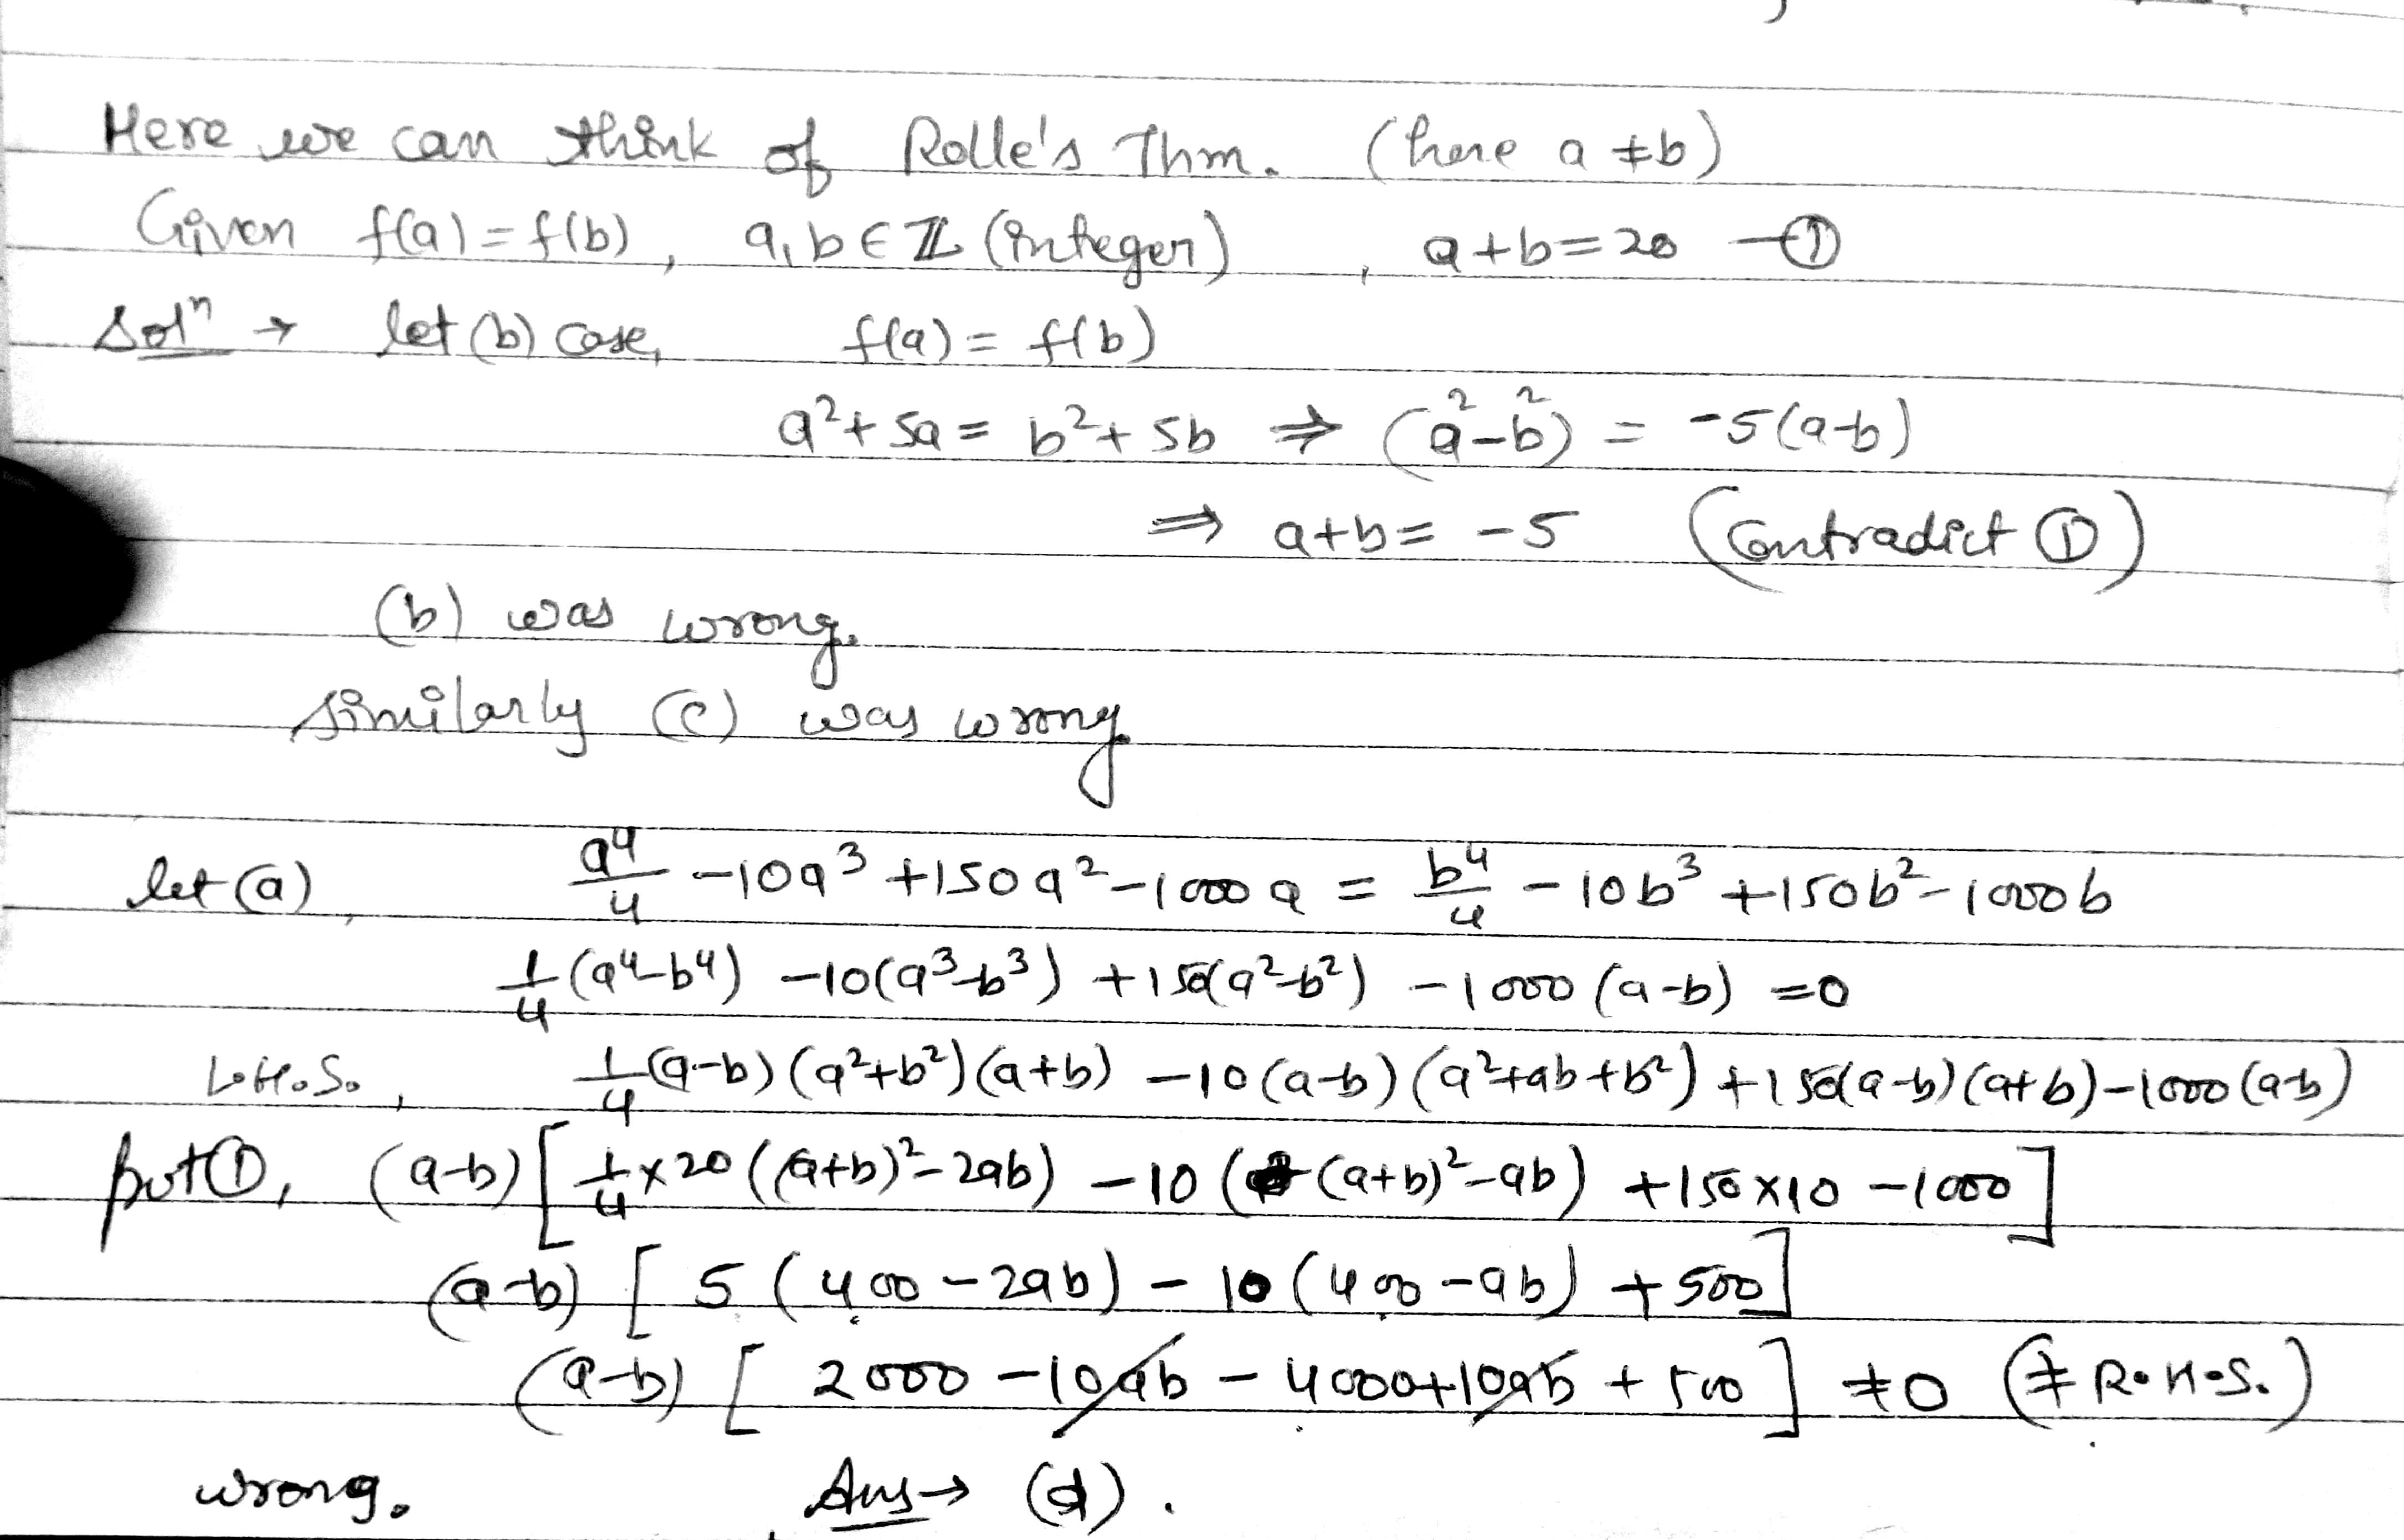 Here we can think of Rolle's Thm. (here a ≠ b)
Given f(a) = f(b), a, b ∈ ℤ (integer), a + b = 20 —①
Solⁿ → let (b) case, f(a) = f(b)
a² + 5a = b² + 5b ⇒ (a² - b²) = -5(a-b)
⇒ a+b = -5 (Contradict ①)
(b) was wrong.
similarly (c) was wrong
let (a), a⁴/4 - 10a³ + 150a² - 1000a = b⁴/4 - 10b³ + 150b² - 1000b
1/4 (a⁴-b⁴) - 10(a³-b³) + 150(a²-b²) - 1000(a-b) = 0
L.H.S., 1/4 (a-b)(a²+b²)(a+b) - 10(a-b)(a²+ab+b²) + 150(a-b)(a+b) - 1000(a-b)
put ①, (a-b)[1/4 × 20((a+b)² - 2ab) - 10((a+b)² - ab) + 150×10 - 1000]
(a-b)[5(400 - 2ab) - 10(400 - ab) + 500]
(a-b)[2000 - 10ab - 4000 + 10ab + 500] ≠ 0 (≠ R.H.S.)
wrong. Ans → (d).